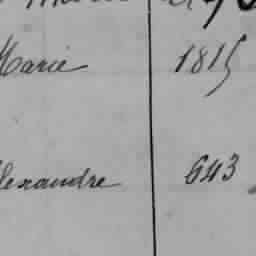 Marie 1815
lexandre 643